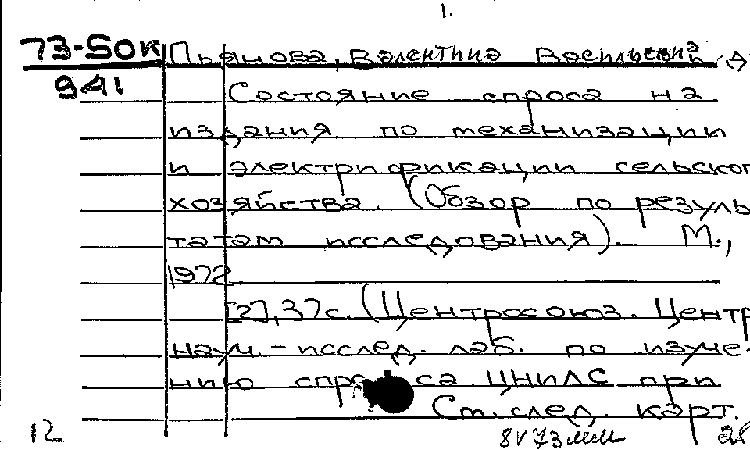 1.
73-50К Пьянова, Валентина Васильевна
941 Состояние спроса на
издания по механизации
и электрификации сельског
хозяйства. (Обзор по резуль
татам исследования). М.,
1972
[2], 37с. (Центросоюз. Центр
науч.-исслед. лаб. по изуче-
нию спроса ЦНИЛС при
Ст. след. карт.
12